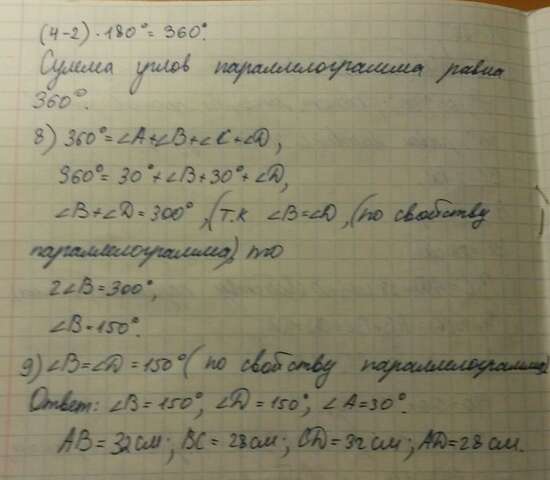 (4-2)·180°=360°.
Сумма углов параллелограмма равна
360°.
8) 360°=∠A+∠B+∠K+∠D,
360°=30°+∠B+30°+∠D,
∠B+∠D=300°, (т.к ∠B=∠D, (по свойству
параллелограмма), то
2∠B=300°,
∠B=150°.
9) ∠B=∠D=150° (по свойству параллелограмма)
Ответ: ∠B=150°, ∠D=150°, ∠A=30°.
AB=32см; BC=28см; CD=32см; AD=28см.